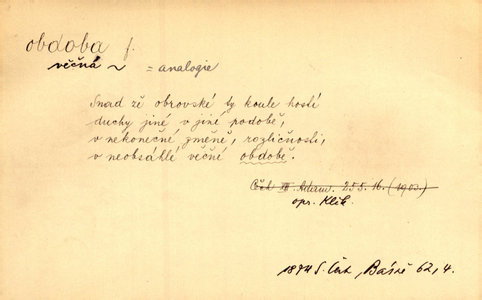 obdoba f.
věčná ~ = analogie
Snad že obrovské ty koule hostí
duchy jiné v jiné podobě,
v nekonečné změně, rozličnosti,
v neobsáhlé věčné obdobě.
Čch VII. Adam. 255. 16. (1903)
opr. Klik.
1874 S. Čech, Básně 62, 4.